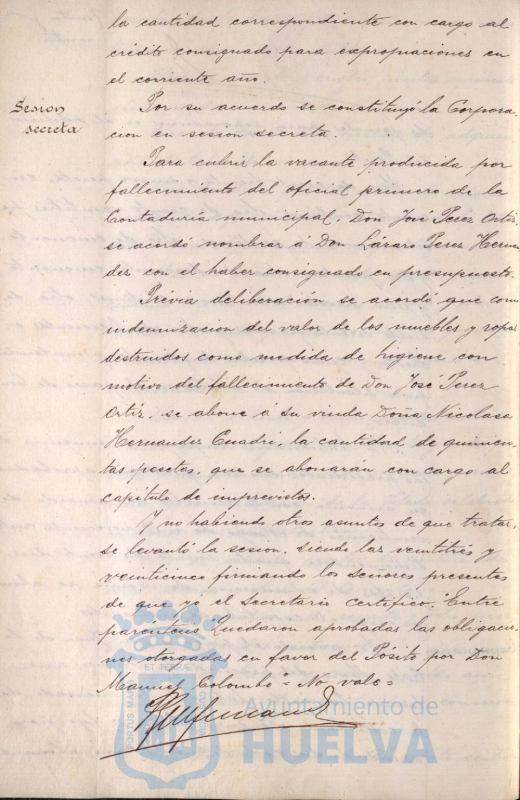 la cantidad correspondiente con cargo al
crédito consignado para expropiaciones en
el corriente año.
Sesion
secreta
Por su acuerdo se constituyó la Corpora-
cion en sesión secreta.
Para cubrir la vacante producida por
fallecimiento del oficial primero de la
Contaduría municipal, Don José Perez Ortiz,
se acordó nombrar á Don Lázaro Perez Hernan
dez con el haber consignado en presupuesto.
Prévia deliberación se acordó que como
indemnizacion del valor de los muebles y ropas
destruidos como medida de higiene con
motivo del fallecimiento de Don José Perez
Ortiz, se abone á su viuda Doña Nicolasa
Hernandez Cuadri, la cantidad de quinien-
tas pesetas, que se abonaran con cargo al
capítulo de imprevistos.
Y no habiendo otros asuntos de que tratar,
se levantó la sesion, siendo las veintitres y
veinticinco firmando los señores presentes
de que yo el Secretario certifico. "Entre
paréntesis" Quedaron aprobadas las obligacio-
nes otorgadas en favor del Pósito por Don
Manuel Colombo = No vale =
Ayuntamiento de
HUELVA
PORTUS MARIS
ET TERRAE
CUSTODIA